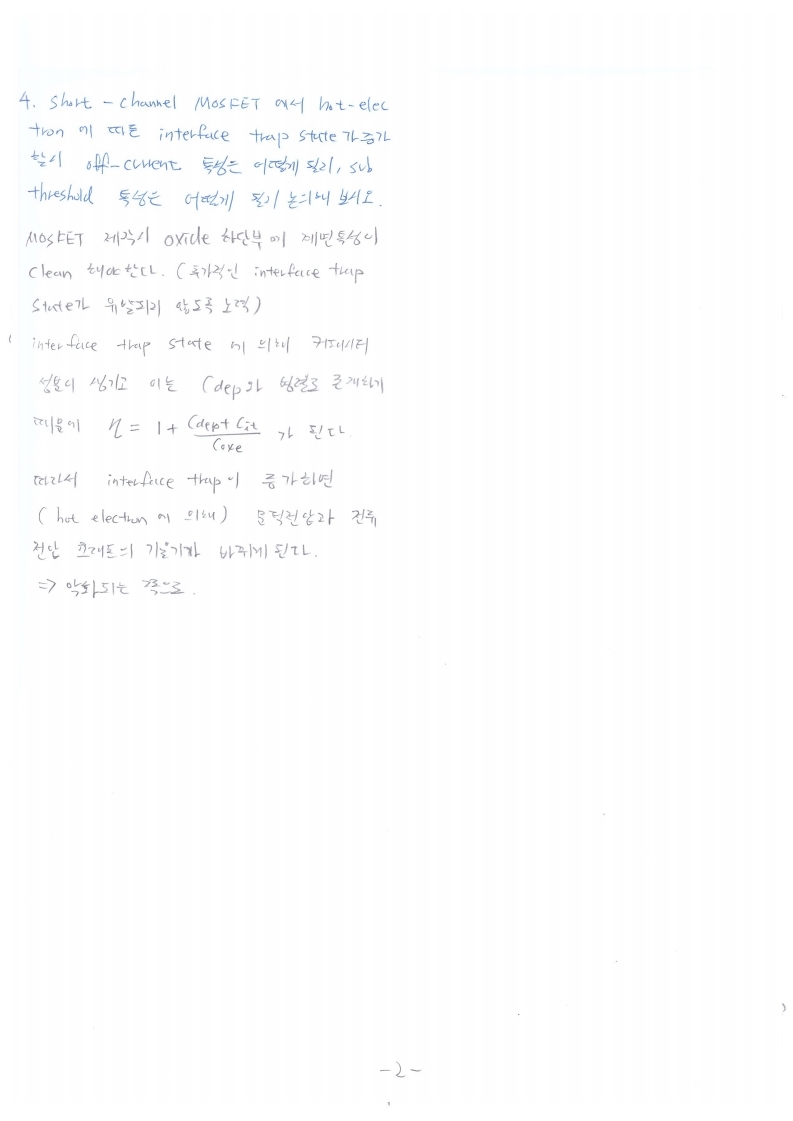 4. Short - channel MOSFET 에서 hot-elec
tron 에 따른 interface trap state가 증가
할시 off-current 특성은 어떻게 될지, sub
threshold 특성은 어떻게 될지 논의해 보시오.
MOSFET 제작시 oxide 하단부에 계면특성이
clean 해야한다. (추가적인 interface trap
state가 유발되지 않도록 노력)
interface trap state 에 의해 커패시터
성분이 생기고 이는 Cdep와 병렬로 존재하기
때문에 η = 1 + (Cdep + Cit)/Coxe 가 된다
따라서 interface trap이 증가하면
(hot electron에 의해) 문턱전압과 전류
전압 그래프의 기울기가 바뀌게 된다.
⇒ 악화되는 쪽으로.
-2-